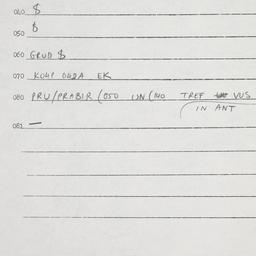 040 $
050 $
060 GRUD $
070 KOUP OUDA EK
080 PRU/PRABIR (050 IN (140 TREF VUS
IN ANT
081 —